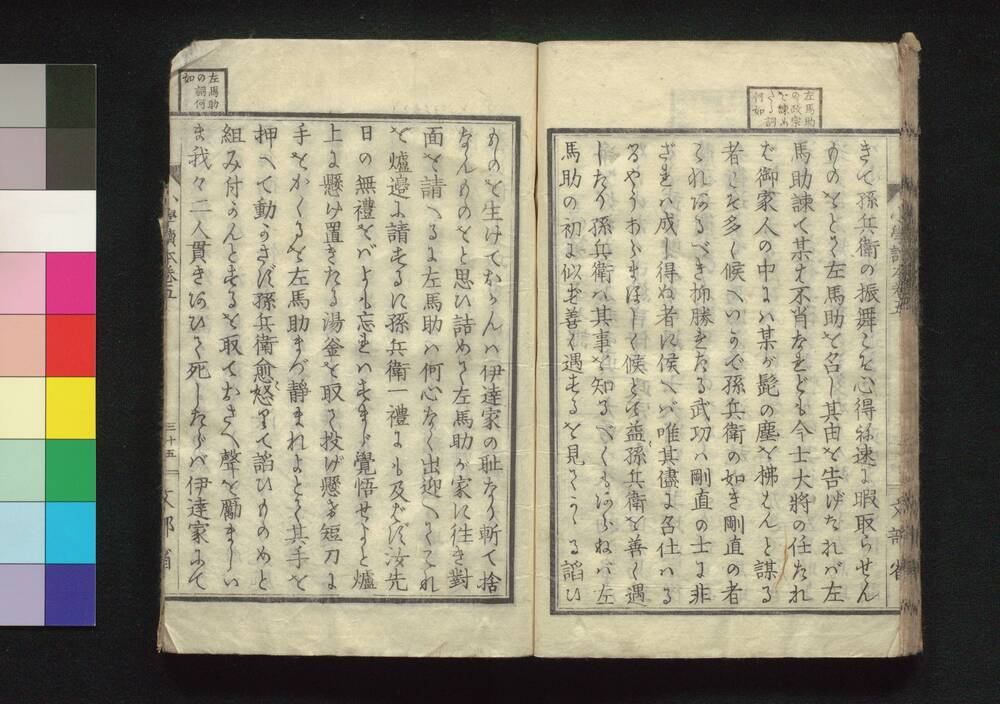 左馬助
の政宗
を諫めたる詞
何如
きて孫兵衛の振舞こそ心得ね速に暇取らせん
ものをとて左馬助を召し其由を告げたれバ左
馬助諫て某ハ不肖なれども今士大将の任たれ
ど御家人の中にハ某が髭の塵を拂はんと謀る
者こそ多く候へいかで孫兵衛の如き剛直の者
これあるべき抑勝れたる武功ハ剛直の士に非
ざれハ成し得ぬ者に候へバ唯其儘に召仕ハる
るやうあらまほしく候とて益孫兵衛を善く遇
したり孫兵衛ハ其事を知るべくもあらねバ左
馬助の初に似ず善く遇するを見てかゝる諂ひ
左馬助
の詞何
如
ものを生けておかんハ伊達家の耻なり斬て捨
なんものをと思ひ詰めて左馬助が家に往き對
面を請へるに左馬助ハ何心なく出迎へてこれ
を爐邉に請ずるに孫兵衛一禮にも及ばず汝先
日の無禮をバよも忘れハすまじ覺悟せよと爐
上に懸け置きたる湯釜を取て投げ懸け短刀に
手をかくるを左馬助まづ静まれよとて其手を
押へて動かさず孫兵衛愈怒りて諂ひものめと
組み付かんとするを取ておさへ聲を勵ましい
ま我々二人貫きあひて死したらバ伊達家にて
小學讀本巻五
三十五
文部省